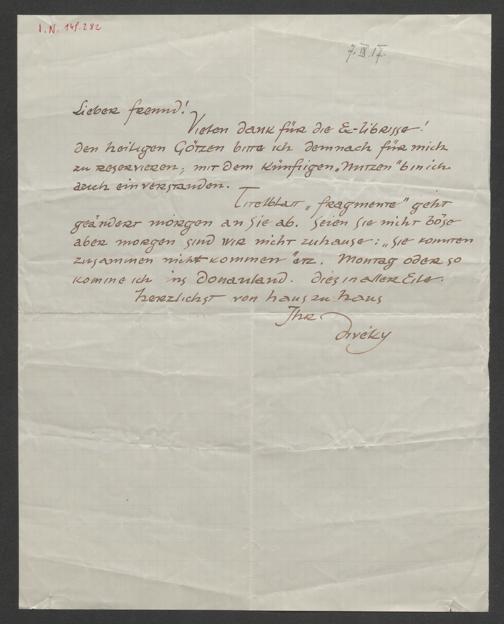 I.N. 148.282
9. IX 17.
Lieber Freund!
Vielen Dank für die Ex-librisse!
Den heiligen Götzen bitte ich demnach für mich
zu reservieren, mit dem künftigen „Nutzen" bin ich
auch einverstanden.
Titelblatt „Fragmente" geht
geändert morgen an Sie ab. Seien Sie nicht böse
aber morgen sind wir nicht zuhause: „Sie konnten
zusammen nicht kommen" etz. Montag oder so
komme ich ins Donauland. Dies in aller Eile.
Herzlichst von Haus zu Haus
Ihr
Divéky